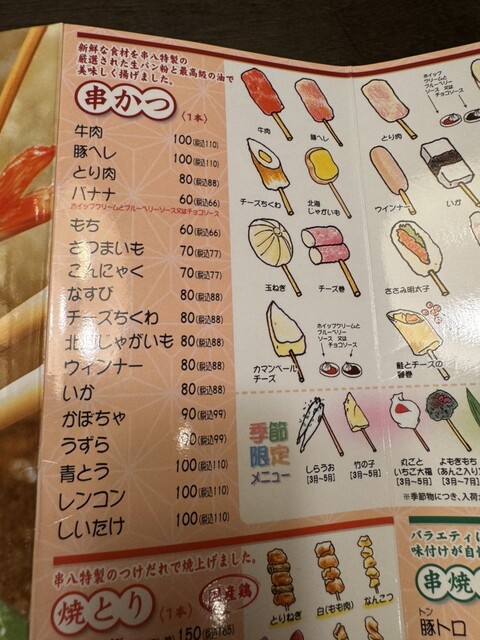 新鮮な食材を串八特製の
厳選された生パン粉と最高級の油で
美味しく揚げました。
串かつ (1本)
牛肉 100(税込110)
豚ヘレ 100(税込110)
とり肉 80(税込88)
バナナ 60(税込66)
ホイップクリームとブルーベリーソース又はチョコソース
もち 60(税込66)
さつまいも 70(税込77)
こんにゃく 70(税込77)
なすび 80(税込88)
チーズちくわ 80(税込88)
北海じゃがいも 80(税込88)
ウィンナー 80(税込88)
いか 80(税込88)
かぼちゃ 90(税込99)
うずら 90(税込99)
青とう 100(税込110)
レンコン 100(税込110)
しいたけ 100(税込110)
牛肉
豚ヘレ
とり肉
ホイップ
クリームと
ブルーベリー
ソース 又は
チョコソース
チーズちくわ
北海
じゃがいも
ウインナー
いか
玉ねぎ
チーズ巻
ささみ明太子
カマンベール
チーズ
ホイップクリームと
ブルーベリー
ソース 又は
チョコソース
鮭とチーズの
季節
限定
メニュー
しらうお
[3月~5月]
竹の子
[3月~5月]
丸ごと
いちご大福
[3月~5月]
よもぎもち
(あんこ入り)
[3月~7月]
※季節物につき、入荷
串八特製のつけだれで焼上げました。
焼とり (1本)
国産鶏
150(税込165)
とりねぎ
白(もも肉)
なんこつ
バラエティに
味付けが自
串焼
豚トロ
トン